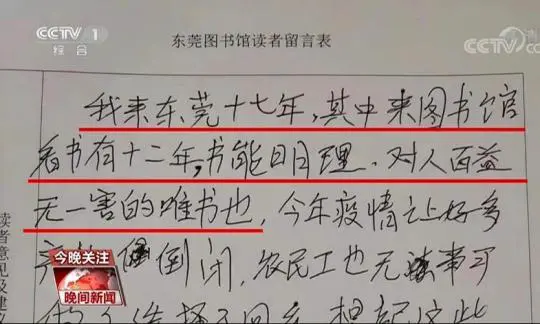 CCTV 1
综合
东莞图书馆读者留言表
CCTV
我来东莞十七年,其中来图书馆
看书有十二年,书能明理,对人百益
无一害的唯书也,今年疫情让好多
倒闭,农民工也无事可
选择了回乡,想起这些
读者意见及建
今晚关注
晚间新闻